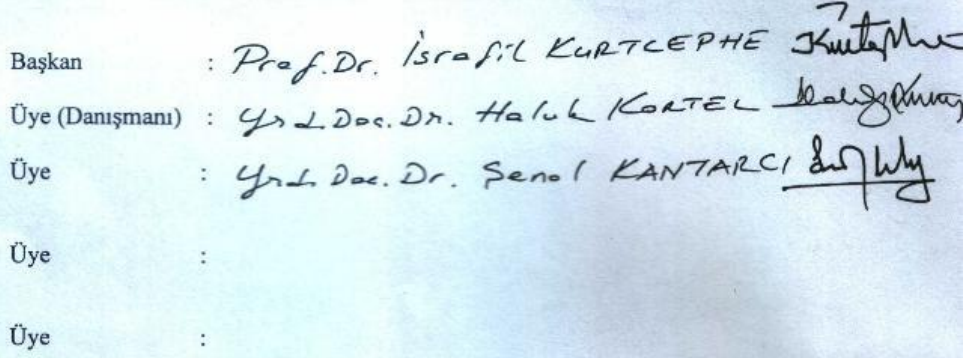 Başkan : Prof. Dr. İsrafil KURTCEPHE
Üye (Danışmanı) : Yrd. Doc. Dr. Haluk KORTEL
Üye : Yrd. Doc. Dr. Şenol KANTARCI
Üye :
Üye :